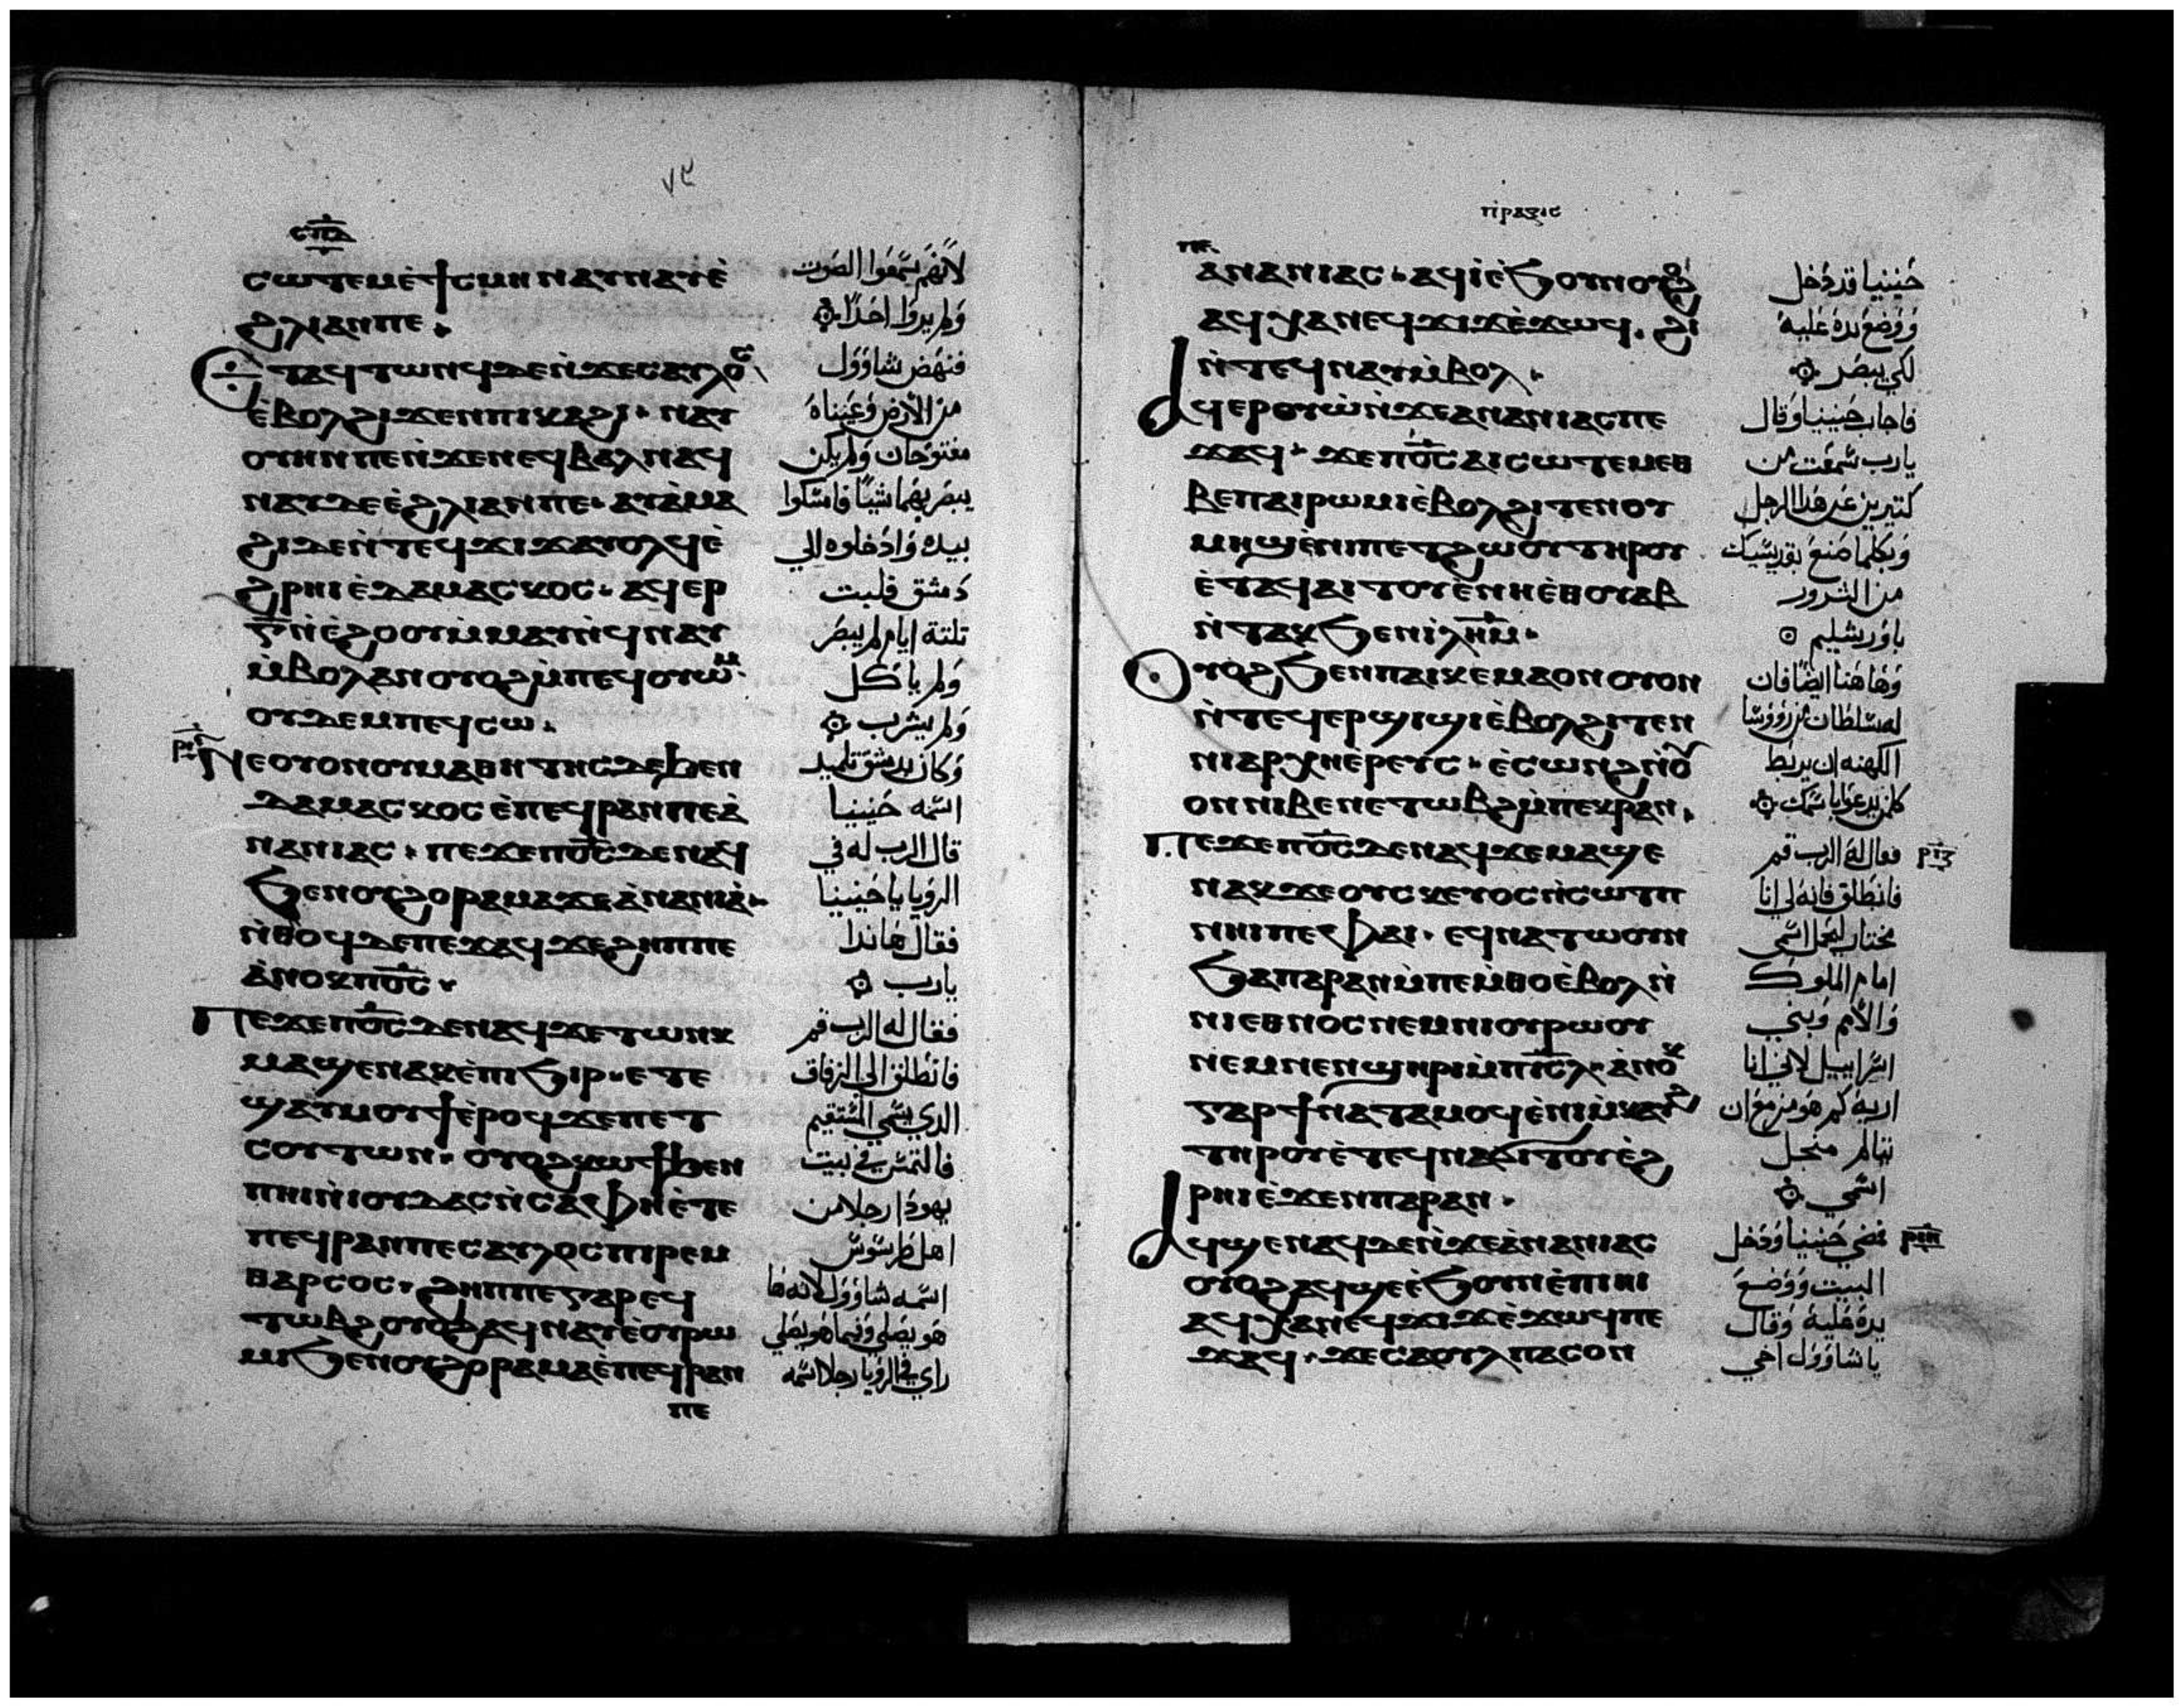 ٧٩
ⲥⲱⲧⲉⲙⲉ̀ϯⲥⲙⲏ ⲛⲁⲩⲛⲁⲩⲉ̀
ϩ̀ⲗⲓⲁⲛⲡⲉ.
ⲉ̀ⲧⲁϥⲧⲱⲛϥⲇⲉⲛ̀ϫⲉⲥⲁⲩⲗⲟⲥ
ⲉ̀ⲃⲟⲗϩⲓϫⲉⲛⲡⲓⲕⲁϩⲓ. ⲛⲁⲩ
ⲟⲩⲏⲛⲡⲉⲛ̀ϫⲉⲛⲉϥⲃⲁⲗⲛⲁϥ
ⲛⲁⲩⲇⲉⲉ̀ϩⲗⲓⲁⲛⲡⲉ. ⲁⲩⲁ̀ⲙⲁ
ϩⲓⲇⲉⲛ̀ⲧⲉϥϫⲓϫⲁⲩⲟⲗϥⲉ̀
ϩⲣⲏⲓⲉ̀ⲇⲁⲙⲁⲥⲕⲟⲥ. ⲁϥⲉⲣ
ⲅ̅ⲛ̀ⲉ̀ϩⲟⲟⲩⲙ̀ⲙⲁⲩⲛ̀ϥⲛⲁⲩ
ⲙ̀ⲃⲟⲗⲁⲛⲟⲩⲟϩⲙ̀ⲡⲉϥⲟⲩⲱⲙ
ⲟⲩⲇⲉⲙⲡⲉϥⲥⲱ.
ⲛⲉⲟⲩⲟⲛⲟⲩⲙⲁⲑⲏⲧⲏⲥⲇⲉϧⲉⲛ
ⲇⲁⲙⲁⲥⲕⲟⲥⲉ̀ⲡⲉϥⲣⲁⲛⲡⲉⲁ̀
ⲛⲁⲛⲓⲁⲥ. ⲡⲉϫⲉⲡⲟ̅ⲥ̅ⲇⲉⲛⲁϥ
ϧⲉⲛⲟⲩϩⲟⲣⲁⲙⲁϫⲉⲁ̀ⲛⲁⲛⲓⲁ̀.
ⲛ̀ⲑⲟϥⲇⲉⲡⲉϫⲁϥϫⲉϩⲏⲡⲡⲉ
ⲁ̀ⲛⲟⲕⲡⲟ̅ⲥ̅.
ⲡⲉϫⲉⲡⲟ̅ⲥ̅ⲇⲉⲛⲁϥϫⲉⲧⲱⲛⲕ
ⲙⲁϣⲉⲛⲁⲕⲉ̀ⲡⲓϧⲓⲣ.ⲉⲧⲉ
ϣⲁⲩⲙⲟⲩϯⲉ̀ⲣⲟϥϫⲉⲡⲉⲧ
ⲥⲟⲩⲧⲱⲛ. ⲟⲩⲟϩⲕⲱϯϧⲉⲛ
ⲡⲏⲓⲛ̀ⲓⲟⲩⲇⲁⲥⲛ̀ⲥⲁⲫⲏⲉ̀ⲧⲉ
ⲡⲉϥⲣⲁⲛⲡⲉⲥⲁⲩⲗⲟⲥⲡⲓⲣⲉⲙ
ⲑⲁⲣⲥⲟⲥ. ϩⲏⲡⲡⲉⲅⲁⲣⲉϥ
ⲧⲱⲃϩⲟⲩⲟϩⲁϥⲛⲁⲩⲉ̀ⲟⲩⲣⲱ
ⲙⲓϧⲉⲛⲟⲩϩⲟⲣⲁⲙⲁⲉ̀ⲡⲉϥⲣⲁⲛ
ⲡⲉ
لانهم يسمعوا الصوت
ولم يروا احدا
فنهض شاوول
من الارض وعيناه
مفتوحان ولم يكن
يبصر بهما شيئا فامسكوا
بيده وادخلوه الي
دمشق فلبت
تلتة ايام لم يبصر
ولم ياكل
ولم يشرب
وكان بدمشق تلميد
اسمه حنينيا
قال الرب له في
الرويا يا حنينيا
فقال هاندا
يارب
فقال له الرب قم
فانطلق الي الزقاق
الدي يسمي المستقيم
فالتمس في بيت
يهودا رجلا من
اهل طرسوس
اسمه شاوول لانه ها
هو يصلي وفيما هو يصلي
راي في الرويا رجلا اسمه
ⲡⲣⲁⲝⲓⲥ
ⲁⲛⲁⲛⲓⲁⲥ. ⲁϥⲓ̀ⲉ̀ϧⲟⲩⲛⲟⲩⲟϩ
ⲁϥⲭⲁⲛⲉϥϫⲓϫⲉ̀ϫⲱϥ. ϩⲓ
ⲛ̀ⲧⲉϥⲛⲁⲩⲙ̀ⲃⲟⲗ.
ⲁϥⲉⲣⲟⲩⲱ̀ⲛ̀ϫⲉⲁⲛⲁⲛⲓⲁⲥⲡⲉ
ϫⲁϥ. ϫⲉⲡⲟ̅ⲥ̅ⲁⲓⲥⲱⲧⲉⲙⲉⲑ
ⲃⲉⲡⲁⲓⲣⲱⲙⲓⲉ̀ⲃⲟⲗϩⲓⲧⲉⲛⲟⲩ
ⲙⲏϣⲉ̀ⲛⲓⲡⲉⲧϩⲱⲟⲩⲧⲏⲣⲟⲩ
ⲉ̀ⲧⲁϥⲁⲓⲧⲟⲩⲉ̀ⲛⲏⲉ̀ⲑⲟⲩⲁⲃ
ⲛ̀ⲧⲁⲕϧⲉⲛⲓ̀ⲗⲏ̅ⲙ̅.
ⲟⲩⲟϩϧⲉⲛⲡⲁⲓⲕⲉⲙⲁⲟⲛⲟⲩⲟⲛ
ⲛ̀ⲧⲉϥⲉⲣϣⲓϣⲓⲉ̀ⲃⲟⲗϩⲓⲧⲉⲛ
ⲛⲓⲁⲣⲭⲏⲉ̀ⲣⲉⲩⲥ. ⲉ̀ⲥⲱⲛϩⲛ̀ⲟⲩ
ⲟⲛⲛⲓⲃⲉⲛⲉⲧⲱⲃϩⲙ̀ⲡⲉⲕⲣⲁⲛ.
ⲡⲉϫⲉⲡⲟ̅ⲥ̅ⲇⲉⲛⲁϥϫⲉⲙⲁϣⲉ
ⲛⲁⲕϫⲉⲟⲩⲥⲕⲉⲩⲟⲥⲛ̀ⲥⲱⲧⲡ
ⲛⲏⲓⲡⲉⲫⲁⲓ. ⲉϥⲛⲁⲧⲱⲟⲩⲛ
ϧⲁⲡⲁⲣⲁⲛⲙ̀ⲡⲉⲙ̀ⲑⲟⲉ̀ⲃⲟⲗⲛ̀
ⲛⲓⲉⲑⲛⲟⲥⲛⲉⲙⲛⲓⲟⲩⲣⲱⲟⲩ
ⲛⲉⲙⲛⲉⲛϣⲏⲣⲓⲙ̀ⲡⲓ̅ⲥ̅ⲗ̅. ⲁ̀ⲛⲟⲕ
ⲅⲁⲣϯⲛⲁⲧⲁⲙⲟϥⲉ̀ⲛⲓⲙ̀ⲕⲁⲩϩ
ⲧⲏⲣⲟⲩⲉ̀ⲧⲉϥⲛⲁϭⲓⲧⲟⲩⲉ̀ϩ
ⲣⲏⲓⲉ̀ϫⲉⲛⲡⲁⲣⲁⲛ.
ⲁϥϣⲉⲛⲁϥⲇⲉⲛ̀ϫⲉⲁ̀ⲛⲁⲛⲓⲁⲥ
ⲟⲩⲟϩⲁϥϣⲉⲉ̀ϧⲟⲩⲛⲉ̀ⲡⲓⲏⲓ
ⲁϥⲭⲁⲛⲉϥϫⲓϫⲉ̀ϫⲱϥⲡⲉ
ϫⲁϥ. ϫⲉⲥⲁⲟⲩⲗⲡⲁⲥⲟⲛ
حنينيا قد دخل
ووضع يده عليه
لكي يبصر
فاجاب حنينيا وقال
يارب سمعت من
كتيرين عن هدا الرجل
وبكلما صنع بقديسيك
من الشرور
باورشليم
وهاهنا ايضا فان
له سلطان من روسا
الكهنه ان يربط
كلمن يدعوا باسمك
فقال له الرب قم
فانطلق فانه لي انا
مختار ليحمل اسمي
امام الملوك
والامم وبني
اسراييل لاني انا
اريه كم هو مزمع ان
يتالم من اجل
اسمي
فمضي حنينيا ودخل
البيت ووضع
يده عليه وقال
يا شاوول اخي
ⲣⲓ̅ⲍ̅
ⲣⲓ̅ⲏ̅